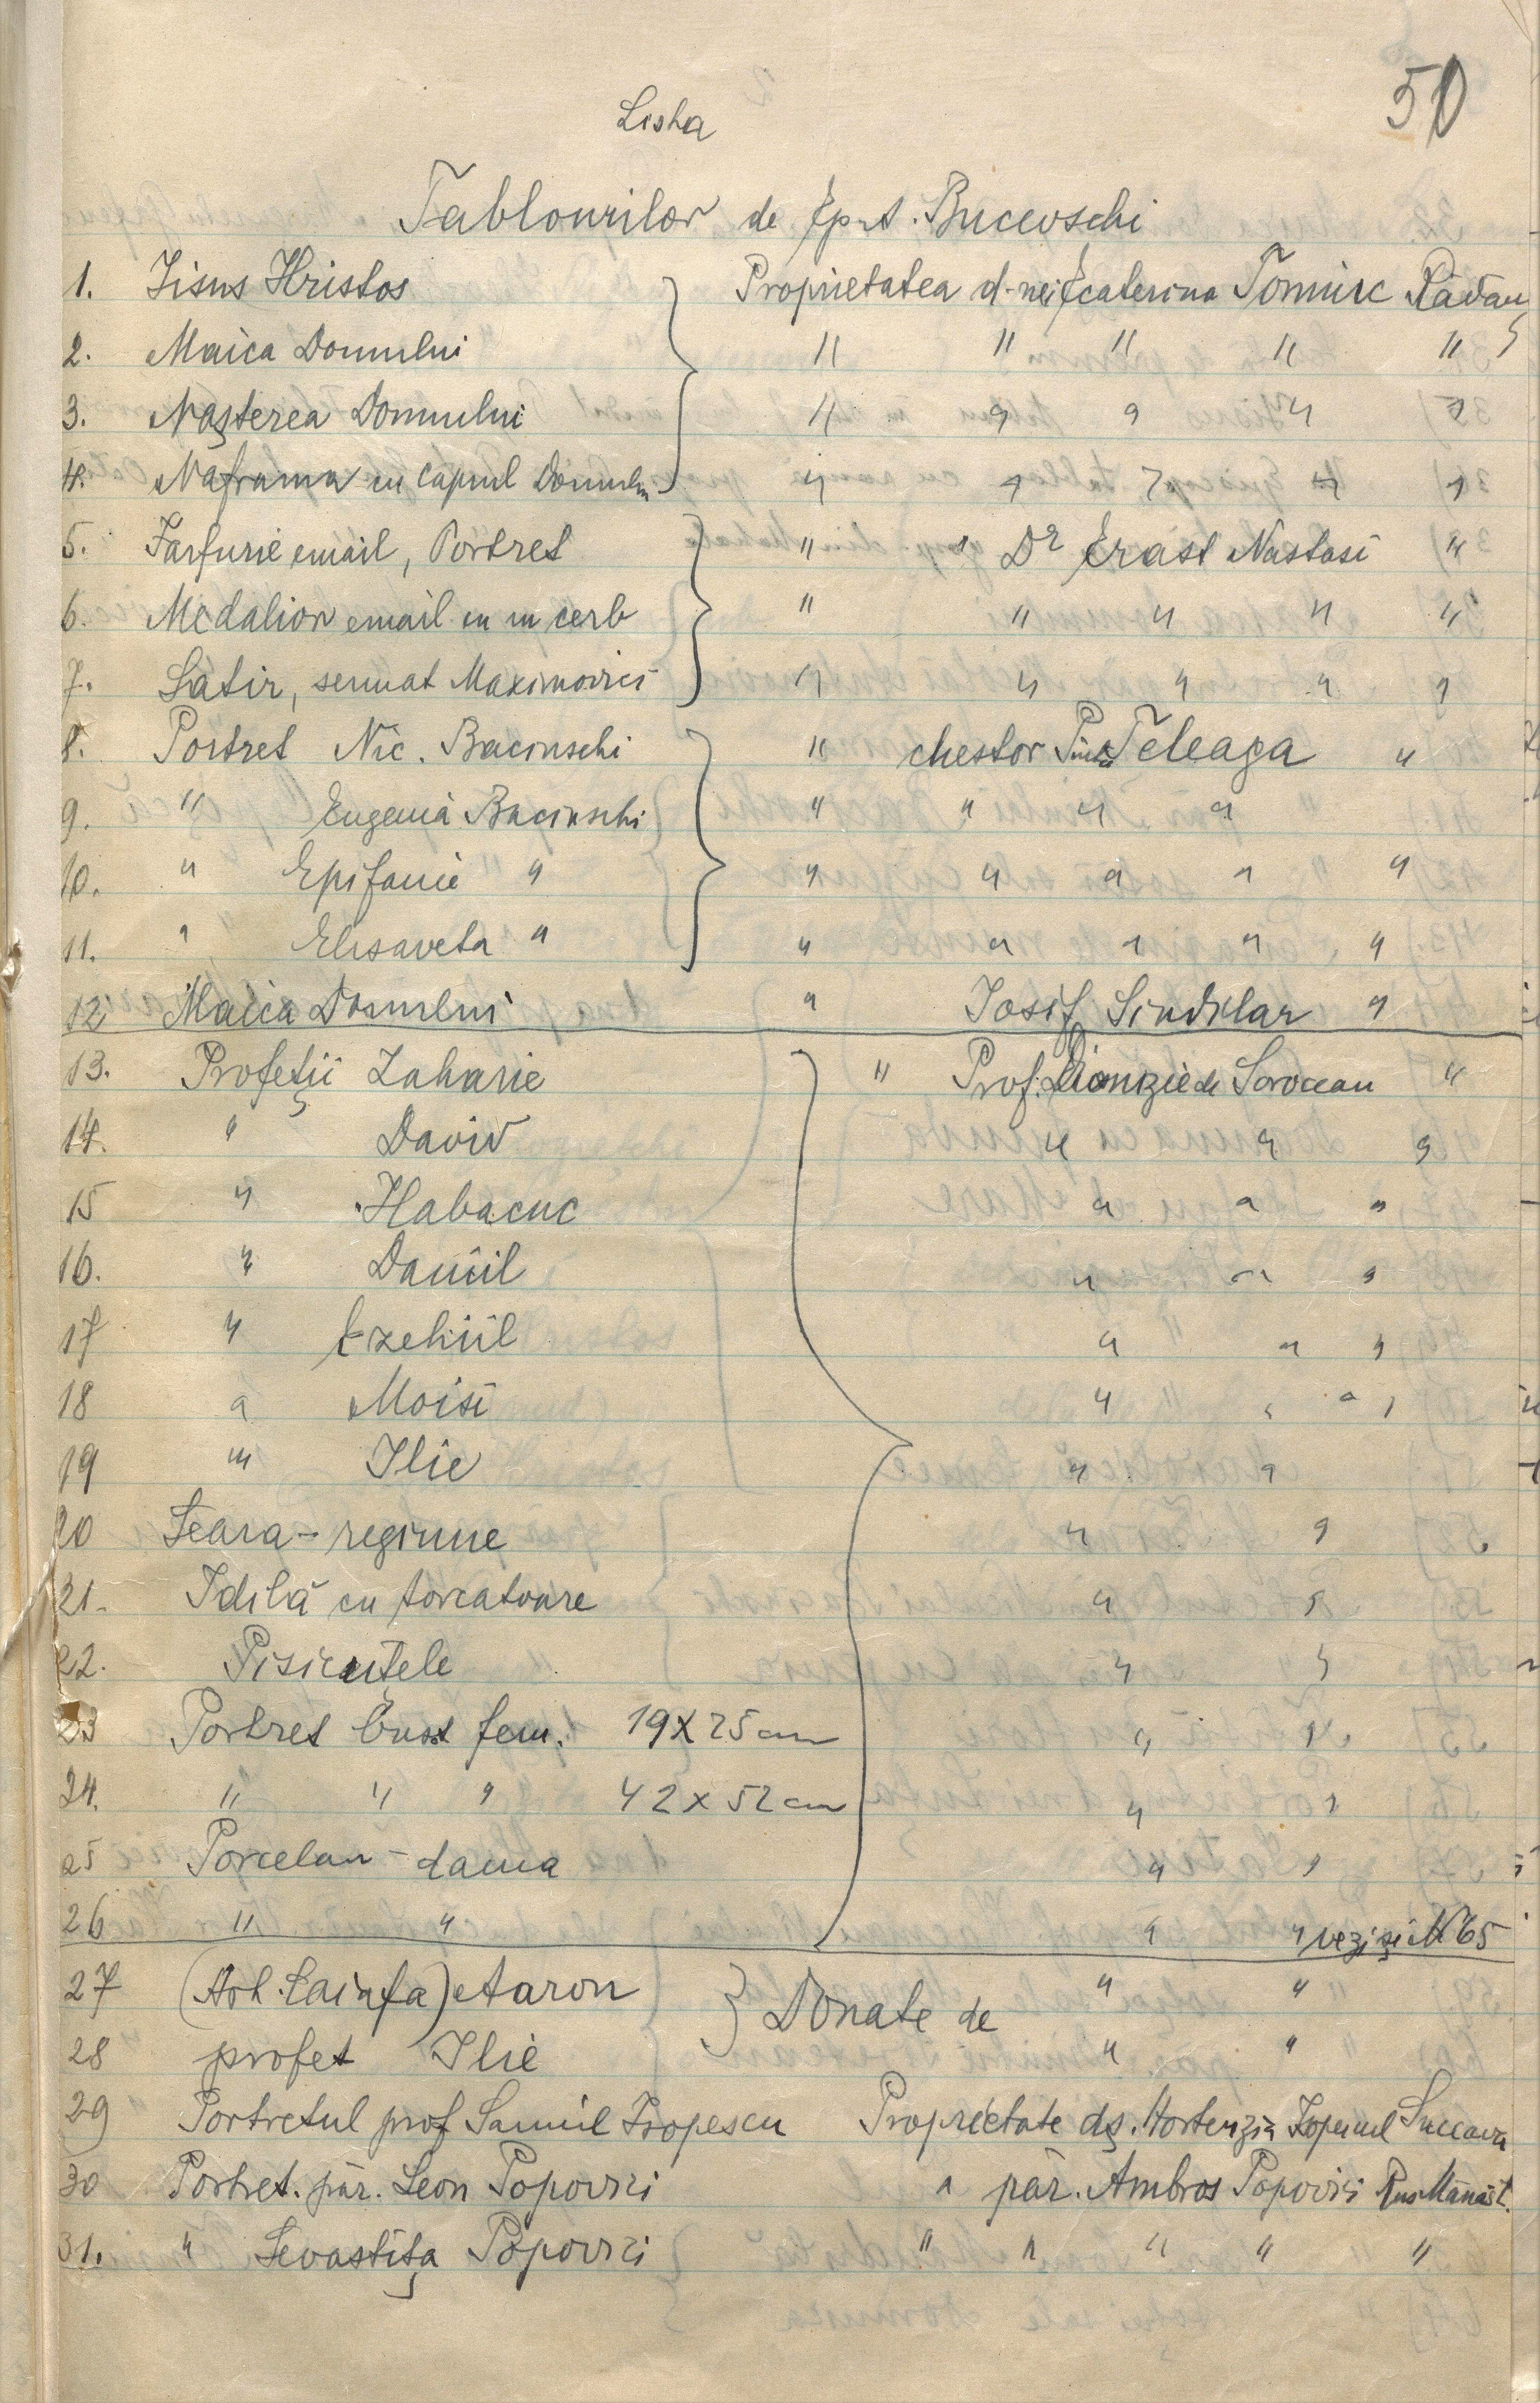 50
Lista
Tablourilor de Ep. A. Bucevschi
1. Iisus Hristos Proprietatea d-nei Ecaterina Tomiuc Rădăuţ
2. Maica Domnului " " " " "
3. Naşterea Domnului " " " " "
4. Naframa cu capul Domnului " " " " "
5. Farfurie email, Portret " " Dr Erast Nastasi "
6. Medalion email cu un cerb " " " " "
7. Satir, semnat Maximovici " " " " "
8. Portret Nic. Bacinschi " chestor Teleaga "
9. " Eugenia Bacinschi " " " "
10. " Epifanie " " " " " "
11. " Elisaveta " " " " " "
12 Maica Domnului " Iosif Sindilar "
13. Profeţii Zaharie " Prof. Dionizie de Sorocean "
14. " David " " "
15 " Habacuc " " "
16. " Daniil " " "
17 " Ezehiil " " "
18 " Moisi " " " "
19 " Ilie " "
20 Seara - regiune " "
21. Idilă cu torcatoare " "
22. Pisicuţele " "
23 Portret bust fem. 19 x 25 cm " "
24. " " " 42 x 52 cm " "
25 Porcelan - dama " "
26 " " " " vezi şi N 65
27 (Arh. Caiafa) Aaron } Donate de " "
28 profet Ilie " "
29 Portretul prof Samuil Isopescu Proprietate dş. Hortenzia Suceava
30 Portret. păr. Leon Popovici " păr. Ambros Popovici Rus Mănăst.
31. " Sevastiţa Popovici " " " " "